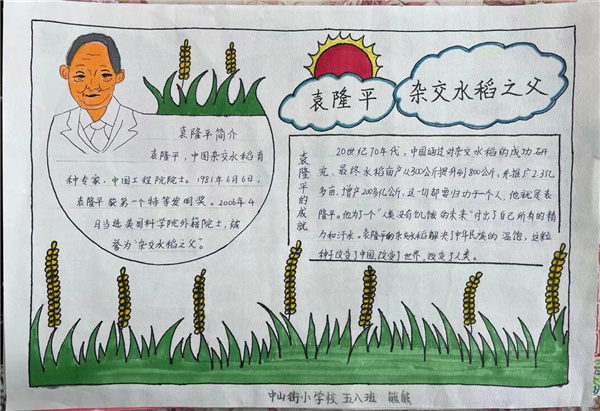 袁隆平
杂交水稻之父
袁隆平简介
袁隆平,中国杂交水稻育
种专家,中国工程院院士。1981年6月6日,
袁隆平获第一个特等发明奖。2006年4
月当选美国科学院外籍院士,被
誉为“杂交水稻之父”。
袁隆平的成就
20世纪70年代,中国通过对杂交水稻的成功研
究,最终水稻亩产从300公斤提升到800公斤,并推广2.3亿
多亩,增产200多亿公斤,这一切都要归功于一个人,他就是袁
隆平。他为了一个“人类没有饥饿的未来”付出了自己所有的精
力和汗水。袁隆平的杂交水稻解决了中华民族的温饱,这粒
种子改变了中国,改变了世界,改变了人类。
中山街小学校 五八班 熊熊